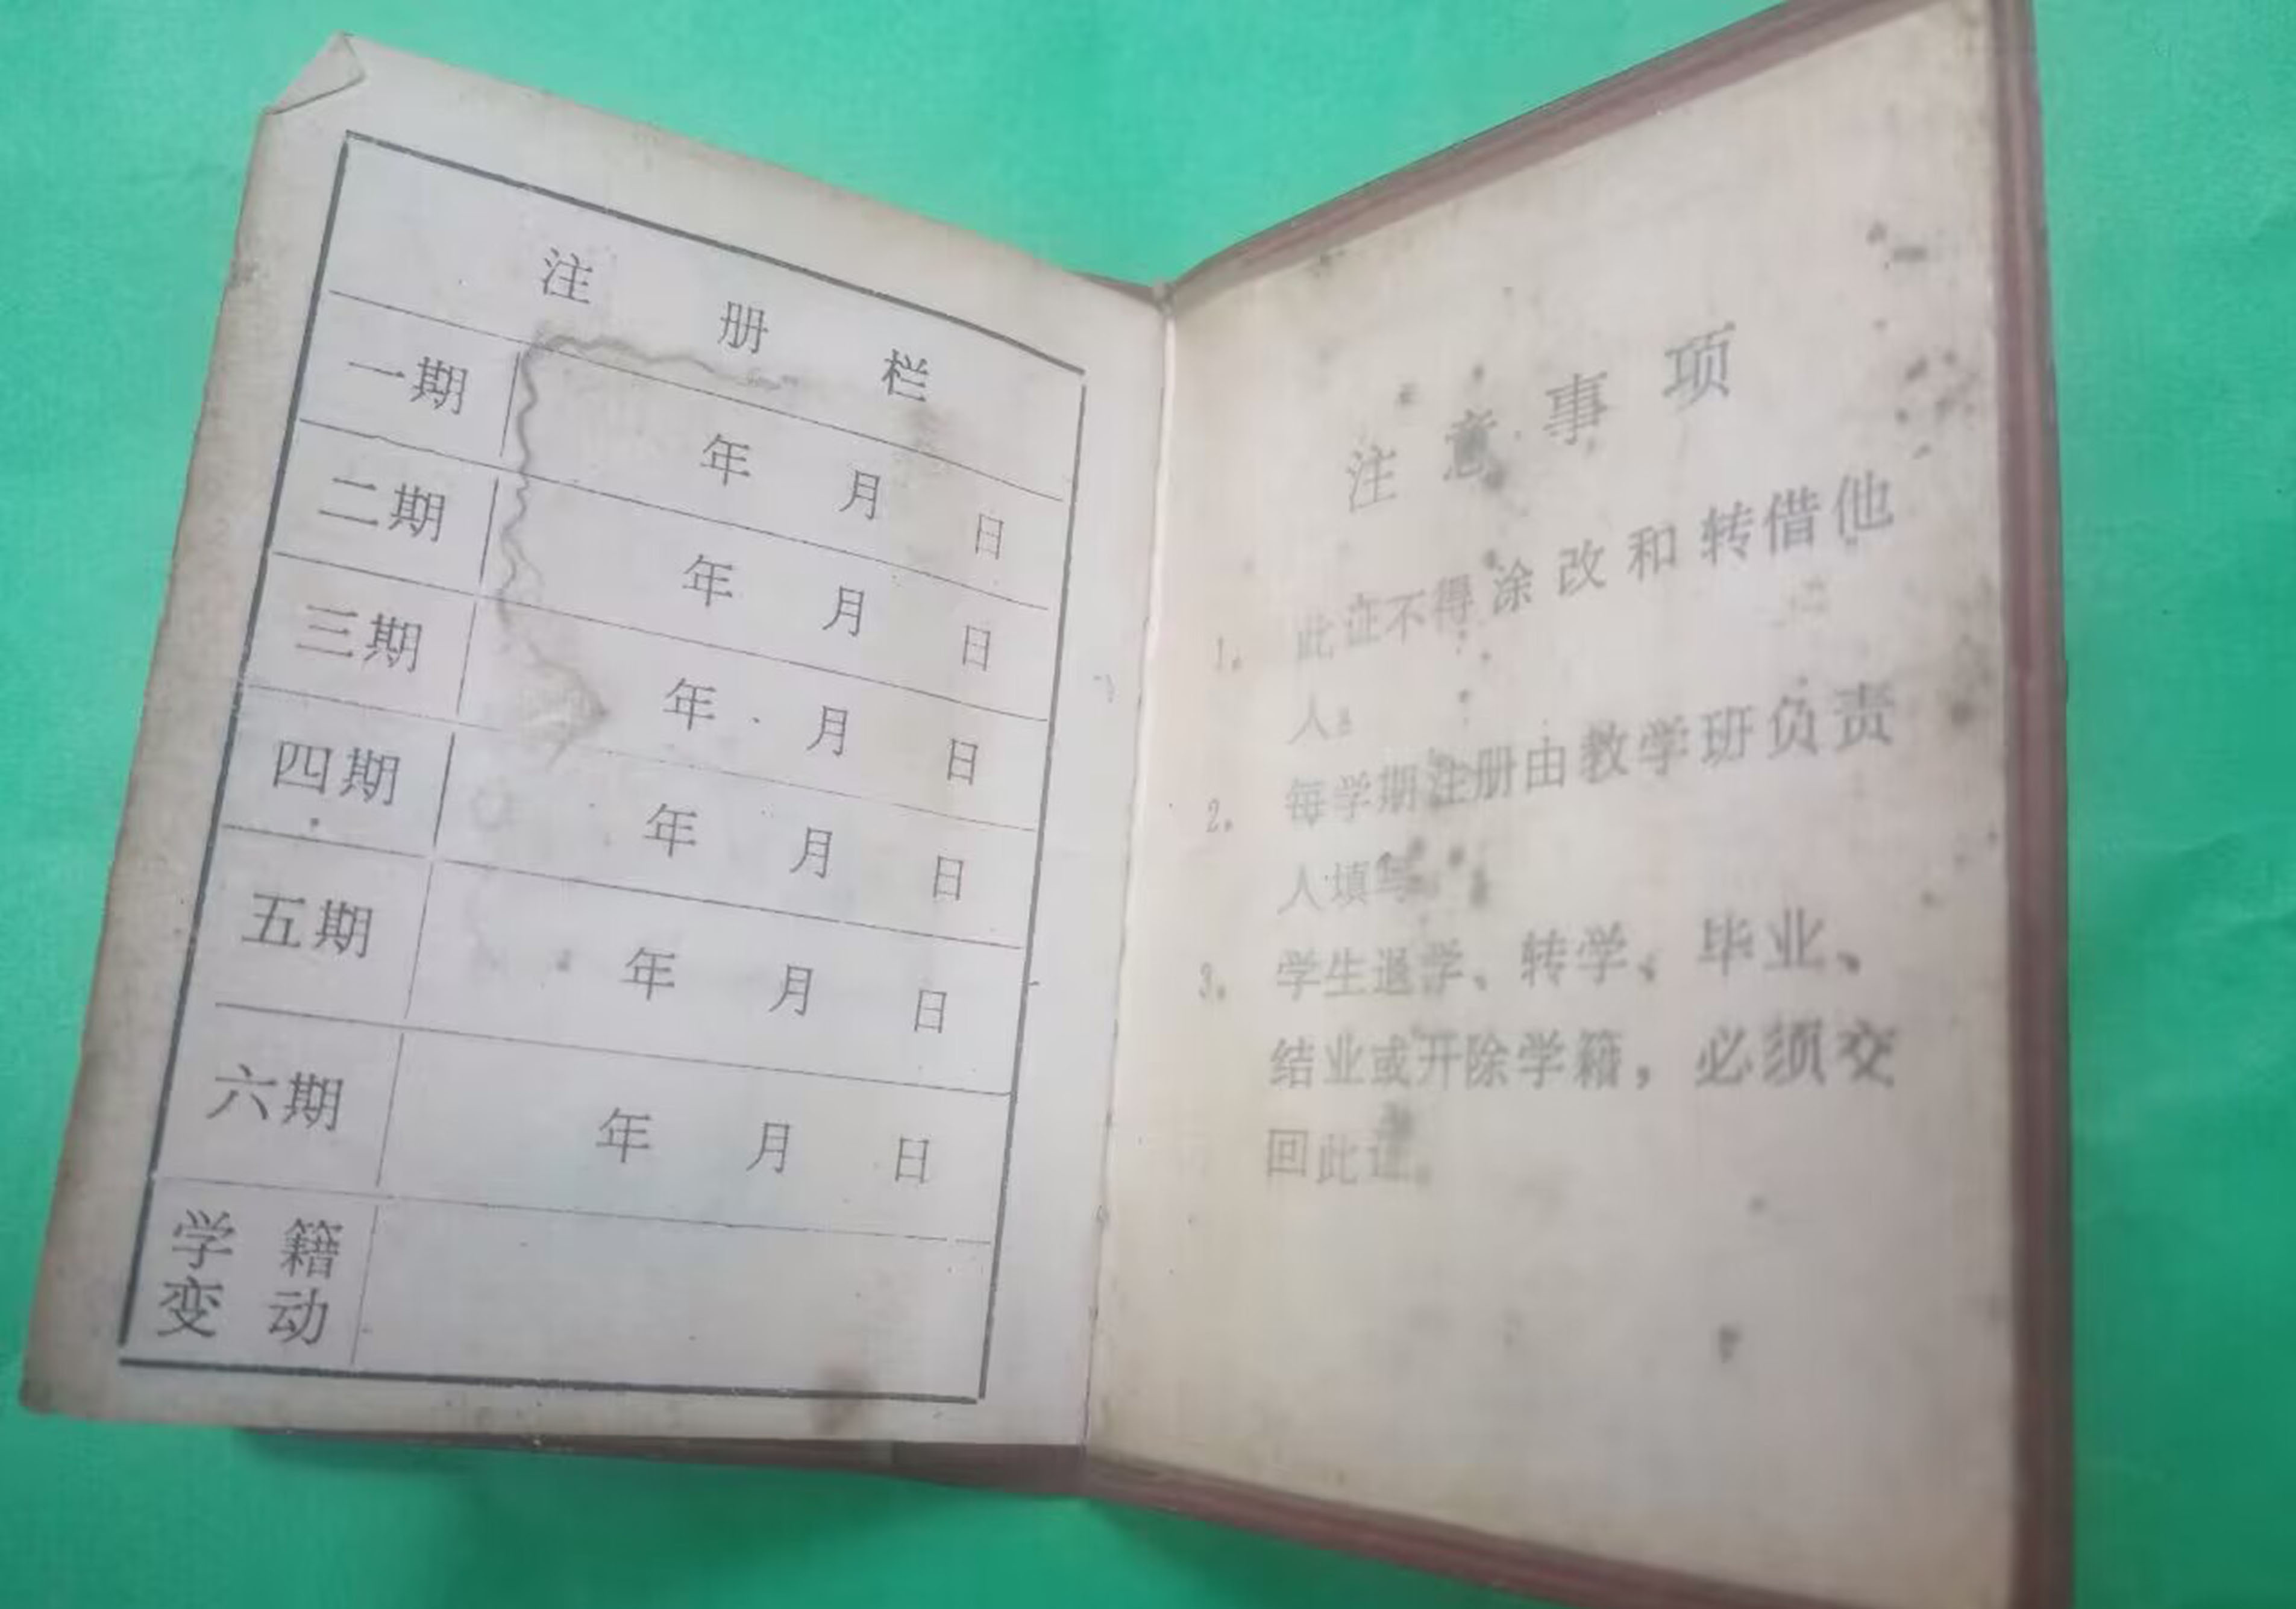 注册栏
一期 年 月 日
二期 年 月 日
三期 年 月 日
四期 年 月 日
五期 年 月 日
六期 年 月 日
学籍
变动
注意事项
1. 此证不得涂改和转借他
人。
2. 每学期注册由教学班负责
人填写。
3. 学生退学、转学、毕业、
结业或开除学籍，必须交
回此证。